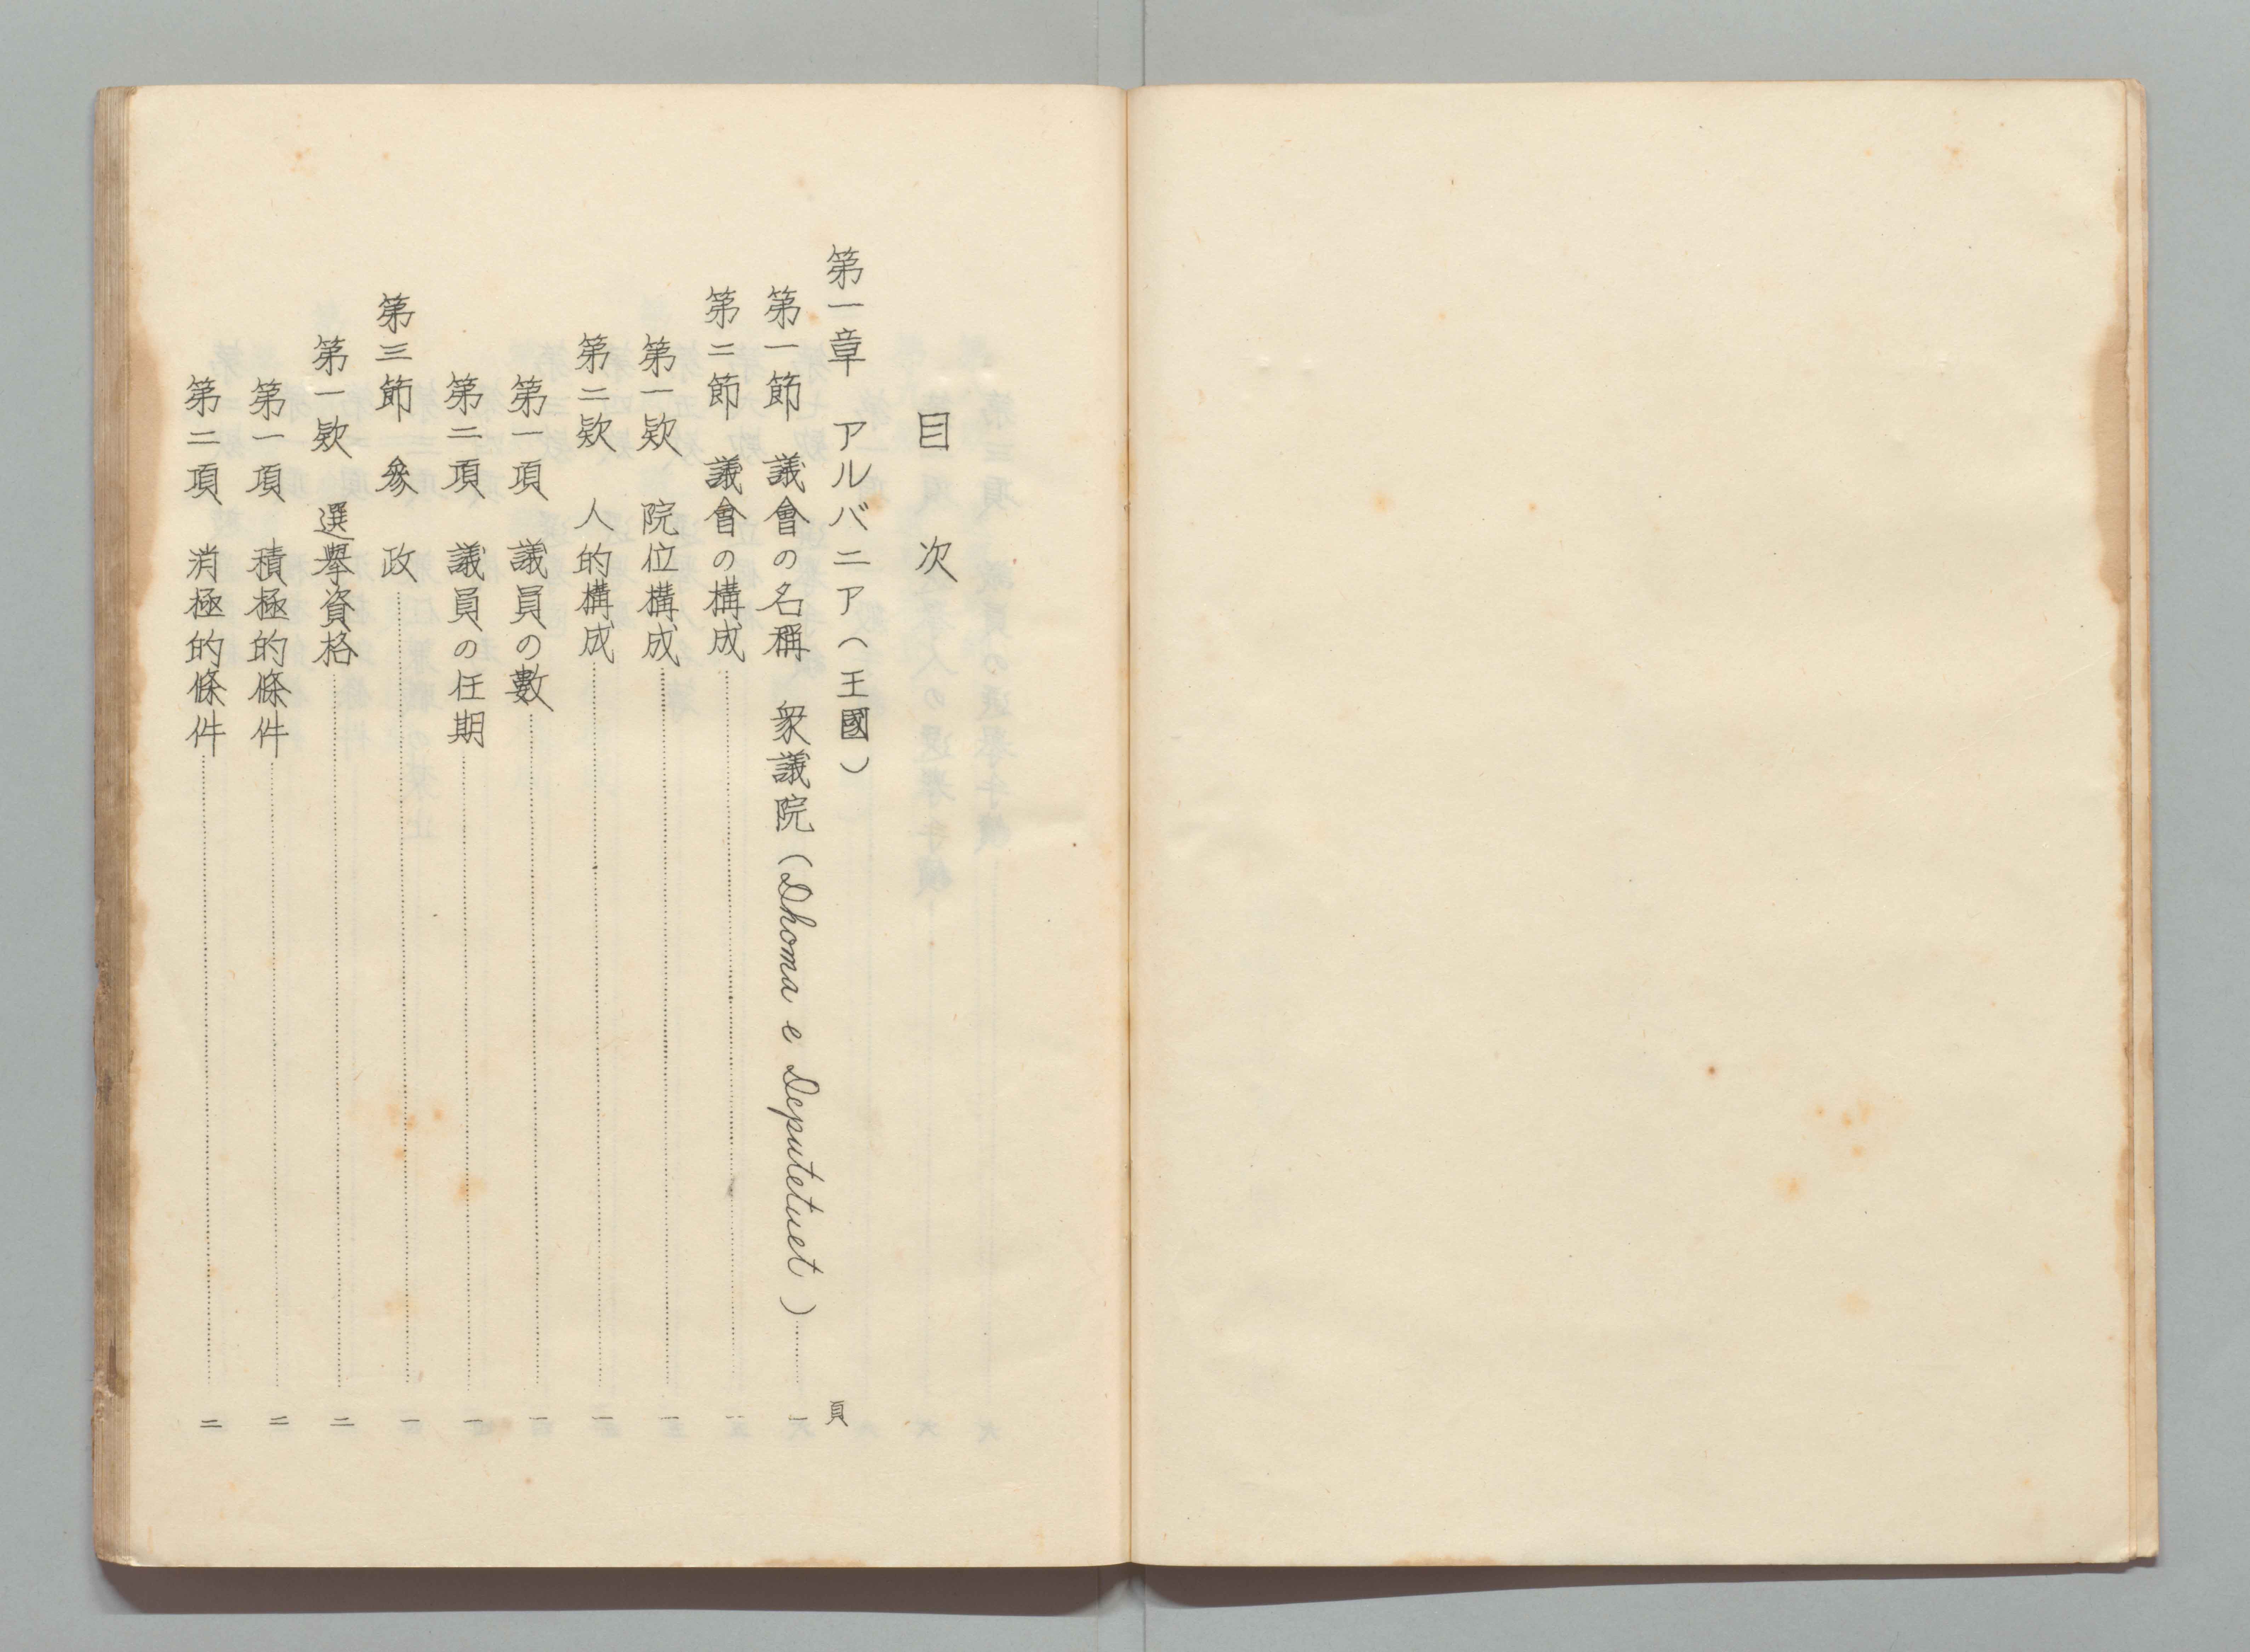 目次
第一章 アルバニア(王國)
頁
第一節 議會の名稱 衆議院(Dhoma e Deputetuet)……一
第二節 議會の構成……一
第一欵 院位構成……一
第二欵 人的構成……一
第一項 議員の數……一
第二項 議員の任期……一
第三節 參政……一
第一欵 選擧資格……二
第一項 積極的條件……二
第二項 消極的條件……二